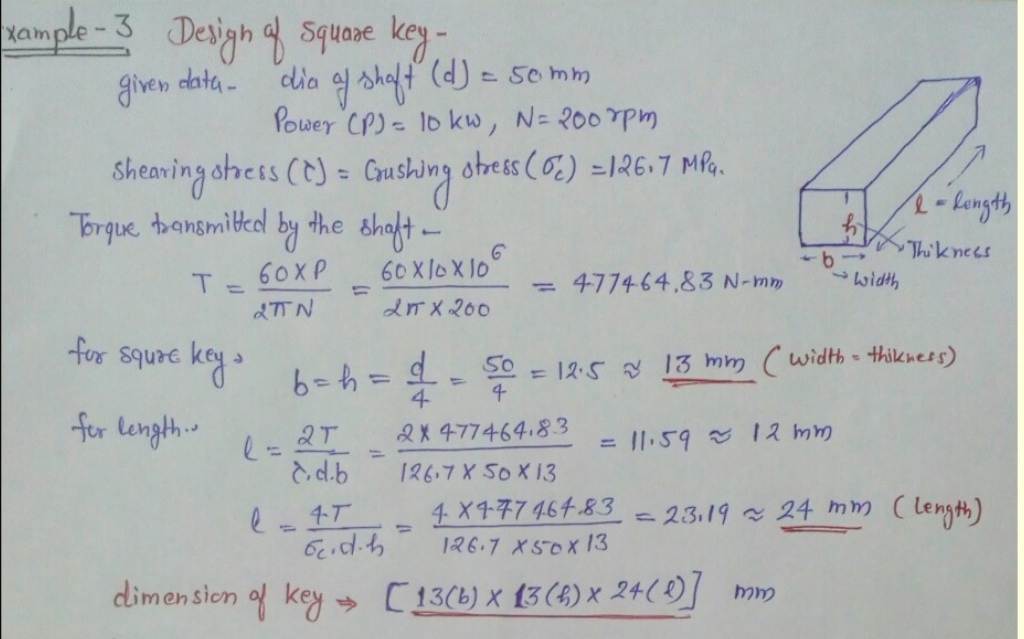 xample-3 Design of Square key-
given data- dia of shaft (d) = 50 mm
Power (P) = 10 kw, N = 200 rpm
Shearing stress (τ) = Crushing stress (σc) = 126.7 MPa.
Torque transmitted by the shaft -
T = 60 X P / 2πN = 60 X 10 X 10^6 / 2π X 200 = 477464.83 N-mm
l = length
h
Thikness
b
→ width
for squre key,
b = h = d/4 = 50/4 = 12.5 ≈ 13 mm (width = thikness)
for length..
l = 2T / τ.d.b = 2 X 477464.83 / 126.7 X 50 X 13 = 11.59 ≈ 12 mm
l = 4T / σc.d.h = 4 X 477464.83 / 126.7 X 50 X 13 = 23.19 ≈ 24 mm (length)
dimension of key → [13(b) X 13(h) X 24(l)] mm